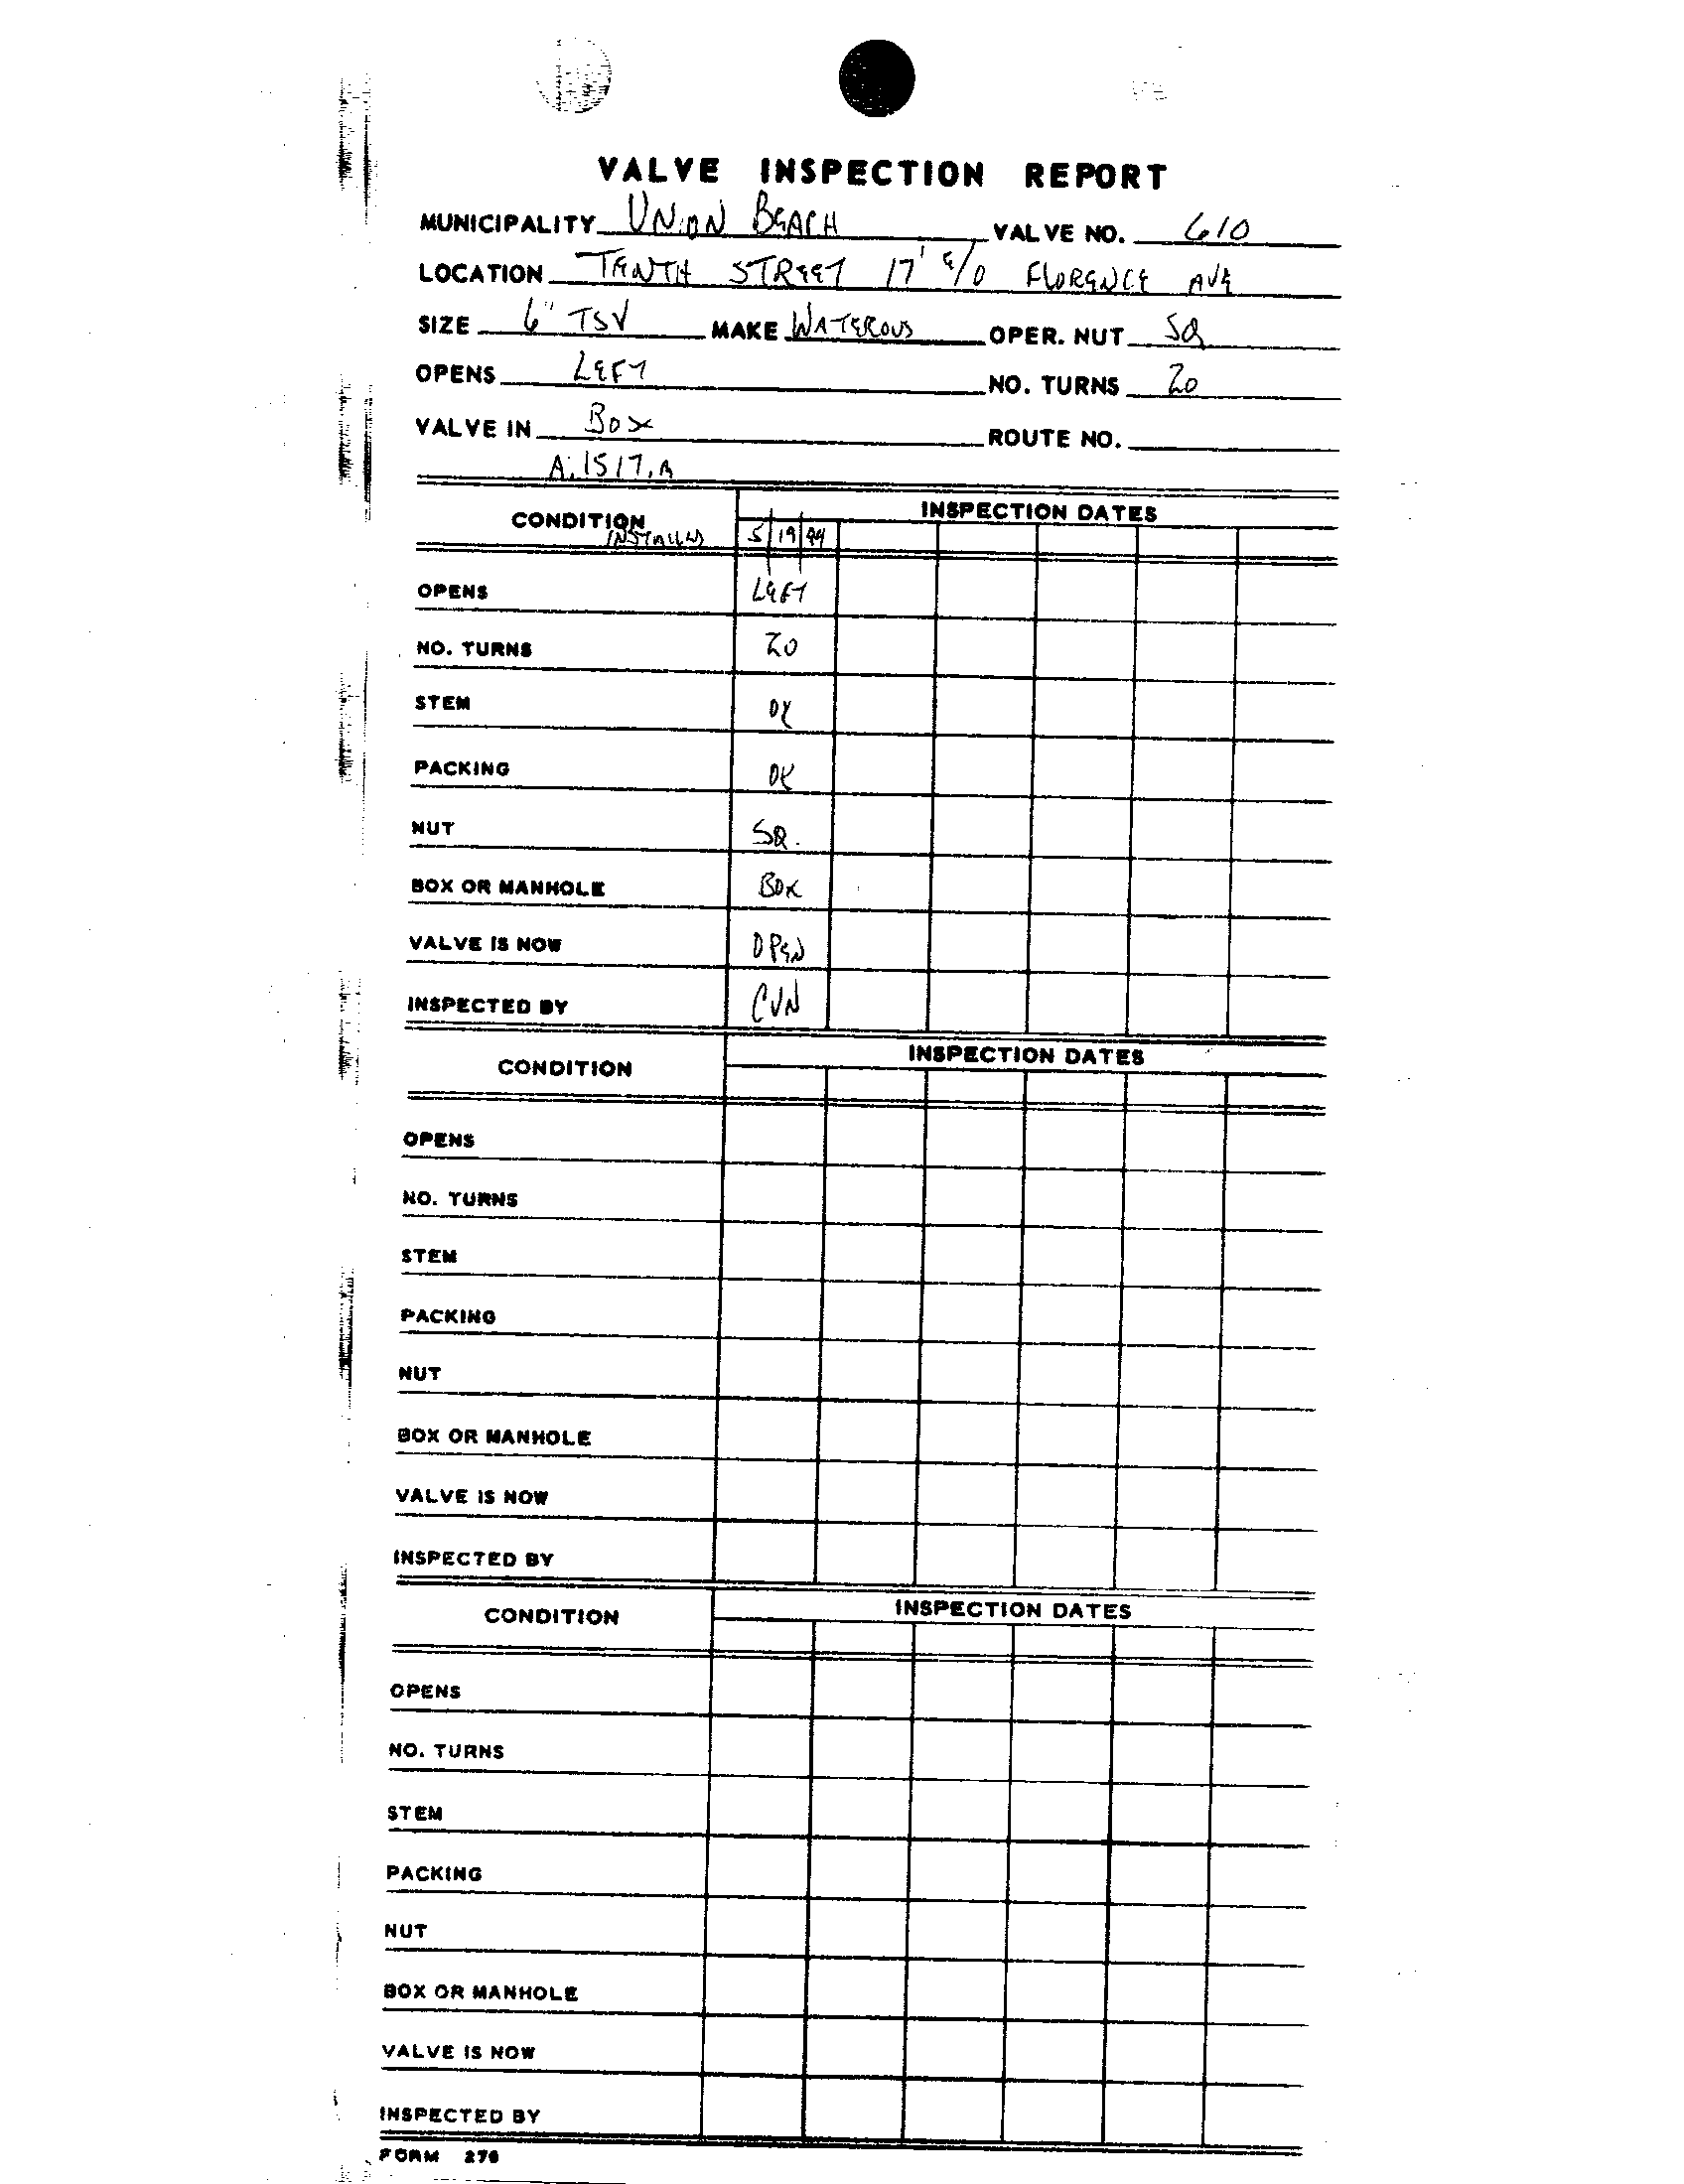 VALVE INSPECTION REPORT
MUNICIPALITY UNION BEACH VALVE NO. 610
LOCATION TENTH STREET 17' E/O FLORENCE AVE
SIZE 6" TSV MAKE WATEROUS OPER. NUT SQ
OPENS LEFT NO. TURNS 20
VALVE IN BOX ROUTE NO.
A.1517.A
CONDITION INSPECTION DATES
INSTALLED 5/19/94
OPENS LEFT
NO. TURNS 20
STEM OK
PACKING OK
NUT SQ.
BOX OR MANHOLE BOX
VALVE IS NOW OPEN
INSPECTED BY CVN
CONDITION INSPECTION DATES
OPENS
NO. TURNS
STEM
PACKING
NUT
BOX OR MANHOLE
VALVE IS NOW
INSPECTED BY
CONDITION INSPECTION DATES
OPENS
NO. TURNS
STEM
PACKING
NUT
BOX OR MANHOLE
VALVE IS NOW
INSPECTED BY
FORM 276